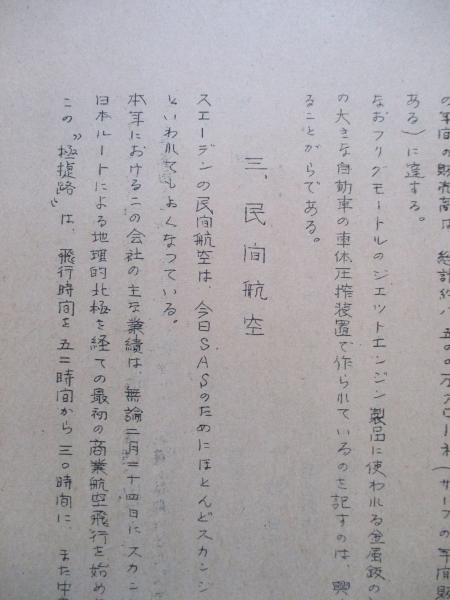 の年間の販売高は、総計約八、五〇〇万クローネ(サーブの年間販
ある)に達する。
なおフリグモートルのジエットエンジン製品に使われる金属鈑の
の大きな自動車の車体圧搾装置で作られているのを記すのは、興
ることがらである。
三、民間航空
スエーデンの民間航空は、今日SASのためにほとんどスカンジ
といわれてもよくなつている。
本年におけるこの会社の主な業績は、無論二月二十四日にスカン
日本ルートによる地理的北極を経ての最初の商業航空飛行を始め
この〝極捷路〟は、飛行時間を五二時間から三〇時間に、また中